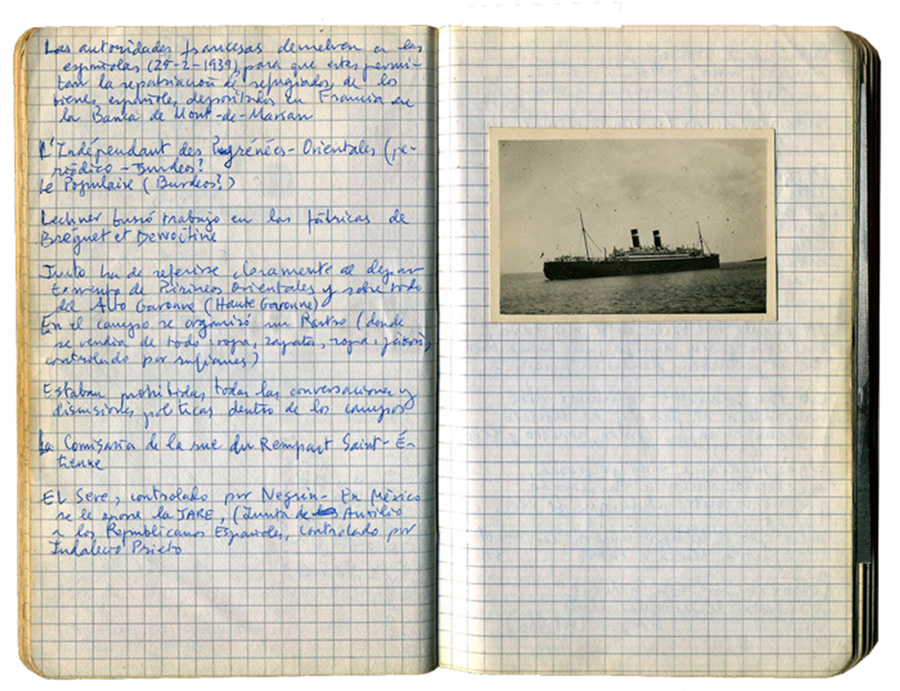 Las autoridades francesas devuelven a las
españolas (25-2-1939) para que estas permi-
tan la repatriación de refugiados de los
bienes españoles depositados en Francia en
la Banca de Mont-de-Marsan
L'Indépendant des Pyrénées-Orientales (pe-
riódico - Burdeos?
Le Populaire (Burdeos?)
Lechner buscó trabajo en las fábricas de
Bréguet et Dewoitine
Justo ha de referirse claramente al depar-
tamento de Pirineos Orientales y sobre todo
del Alto Garona (Haute Garonne)
En el campo se organizó un Rastro (donde
se vendía de todo ropa, zapatos, ropa, jabón,
controlado por rufianes)
Estaban prohibidas todas las conversaciones y
discusiones políticas dentro de los campos
La Comisaría de la rue du Rempart Saint-É-
tienne
El Sere, controlado por Negrín - En México
se le opone la JARE, (Junta de Auxilio
a los Republicanos Españoles, controlado por
Indalecio Prieto